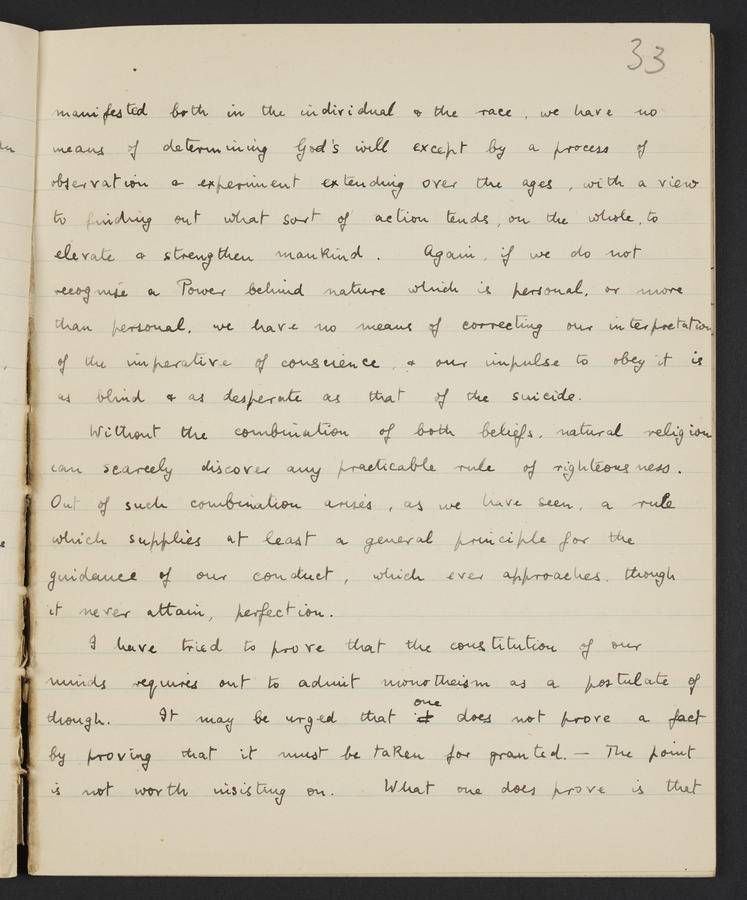 33
manifested both in the individual & the race, we have no
means of determining God's will except by a process of
observation & experiment extending over the ages, with a view
to finding out what sort of action tends, on the whole, to
elevate & strengthen mankind. Again, if we do not
recognise a Power behind nature which is personal, or more
than personal, we have no means of correcting our interpretation
of the imperative of conscience, & our impulse to obey it is
as blind & as desperate as that of the suicide.
Without the combination of both beliefs, natural religion
can scarcely discover any practicable rule of righteousness.
Out of such combination arises, as we have seen, a rule
which supplies at least a general principle for the
guidance of our conduct, which ever approaches, though
it never attain, perfection.
I have tried to prove that the constitution of our
minds requires out to admit monotheism as a postulate of
though. It may be urged that one does not prove a fact
by proving that it must be taken for granted. — The point
is not worth insisting on. What one does prove is that